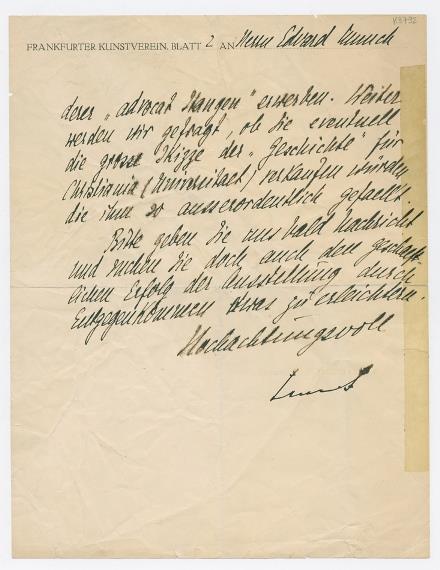 K3792
FRANKFURTER KUNSTVEREIN. BLATT 2 AN Herrn Edvard Munch
derer „advocat Hangen" erwerben. Weiter
werden wir gefragt, ob Sie eventuell
die grosse Skizze der „Geschichte" für
Christiania (Universitaet) verkaufen würden
die ihm so ausserordentlich gefaellt.
Bitte geben Sie uns bald Nachricht
und suchen Sie doch auch den geschäft-
lichen Erfolg der Ausstellung durch
Entgegenkommen etwas zu erleichtern.
Hochachtungsvoll